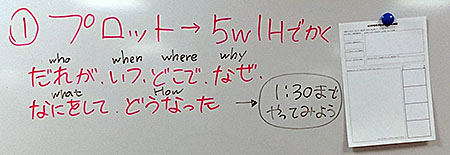 ① プロット → 5W1Hでかく
who when where why
だれが、いつ、どこで、なぜ、
what How
なにをして、どうなった →
1:30まで
やってみよう